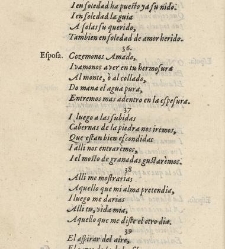 I en soledad ha puesto ya su nido.
I en soledad la guia
A solas su querido,
Tambien en soledad de amor herido.
36.
Esposa. Gozemonos Amado,
I vamonos a ver en tu hermosura
Al monte, è al collado,
Do mana el agua pura,
Entremos mas adentro en la espesura.
37
I luego a las subidas
Cabernas de la piedra nos iremos,
Que estan bien escondidas
I alli nos entraremos,
I el mosto de granadas gustaremos.
38
Alli me mostrarias
Aquello que mi alma pretendia,
I luego me darias
Alli tu, vida mia,
Aquello que me diste el otro dia.
39
El aspirar del aire,